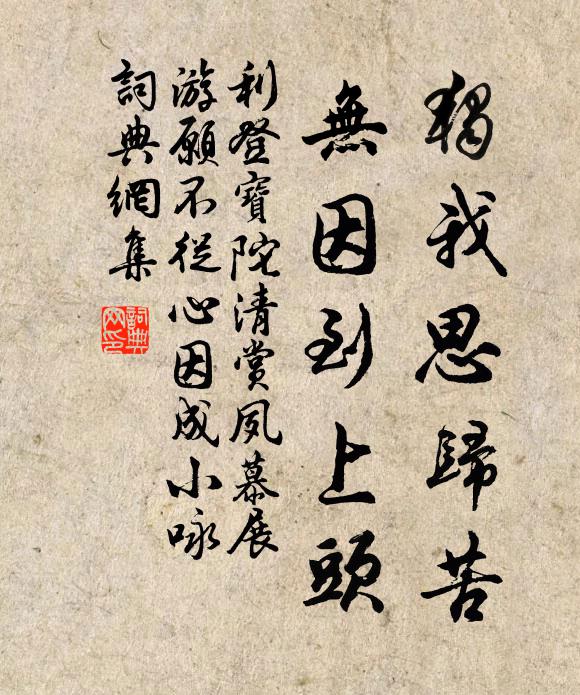 獨我思歸苦
無因到上頭
利登寶陀清賞夙慕展
游願不從心因成小咏
詞典網集
詞典
网印